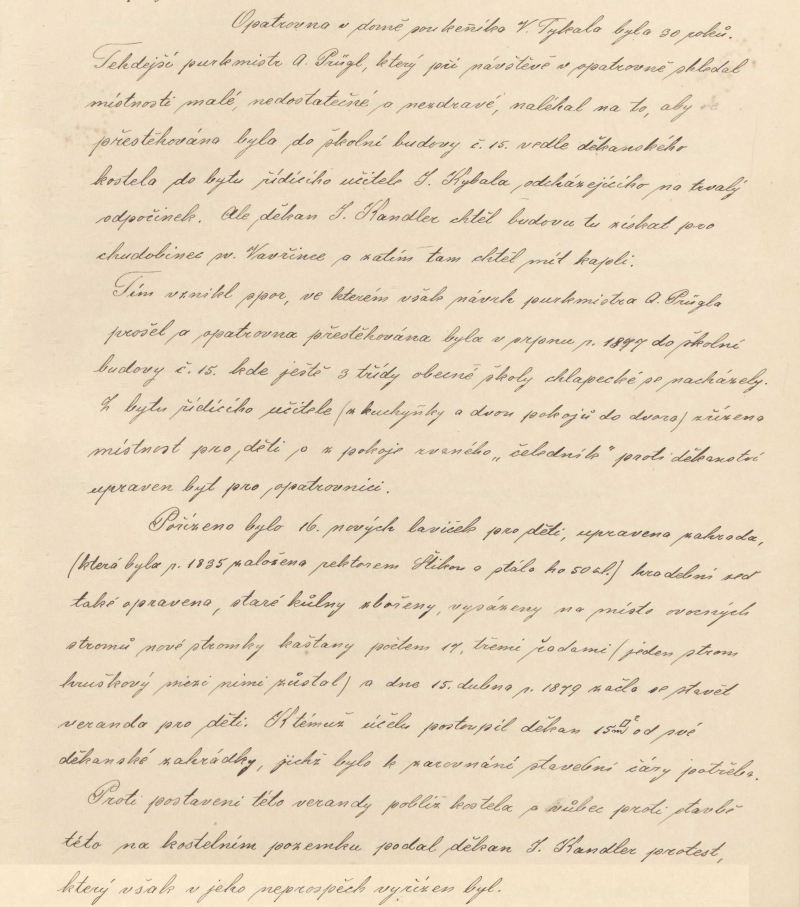 Opatrovna v domě soukeníka V. Tykala byla 30 roků.
Tehdejší purkmistr A. Prügl, který při návštěvě v opatrovně shledal
místnosti malé, nedostatečné a nezdravé, naléhal na to, aby
přestěhována byla do školní budovy č. 15. vedle děkanského
kostela do bytu řídícího učitele J. Kybala, odcházejícího na trvalý
odpočinek. Ale děkan J. Kandler chtěl budovu tu získat pro
chudobinec sv. Vavřince a zatím tam chtěl mít kapli.
Tím vznikl spor, ve kterém však návrh purkmistra A. Prügla
prošel a opatrovna přestěhována byla v srpnu r. 1877 do školní
budovy č. 15. kde ještě 3 třídy obecné školy chlapecké se nacházely.
Z bytu řídícího učitele (z kuchyňky a dvou pokojů do dvora) zřízena
místnost pro děti a z pokoje zvaného „čeledník" proti děkanství
upraven byt pro opatrovnici.
Pořízeno bylo 16. nových laviček pro děti, upravena zahrada,
(která byla r. 1835 založena rektorem Štikou a stála ho 50 zl.) hradební zeď
také opravena, staré kůlny zbořeny, vysázeny na místo ovocných
stromů nové stromky kaštany počtem 17, třemi řadami (jeden strom
hruškový mezi nimi zůstal) a dne 15. dubna r. 1879 začla se stavět
veranda pro děti. K témuž účelu postoupil děkan 15 od své
děkanské zahrádky, jichž bylo k zarovnání stavební čáry potřeba.
Proti postavení této verandy poblíž kostela a vůbec proti stavbě
této na kostelním pozemku podal děkan J. Kandler protest,
který však v jeho neprospěch vyřízen byl.